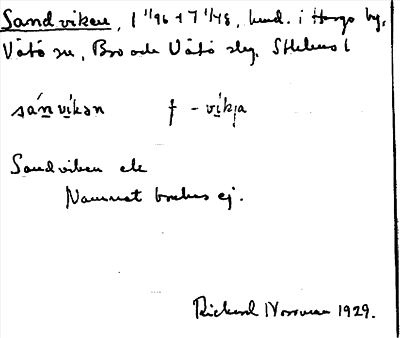 Sandviken, 1 11/96 + 7 11/48, hmd. i Harg by,
Vätö sn, Bro och Vätö slg, Sthlms l
sánvikən f - vikja
Sandviken ek
Namnet brukas ej.
Rickard 1929.